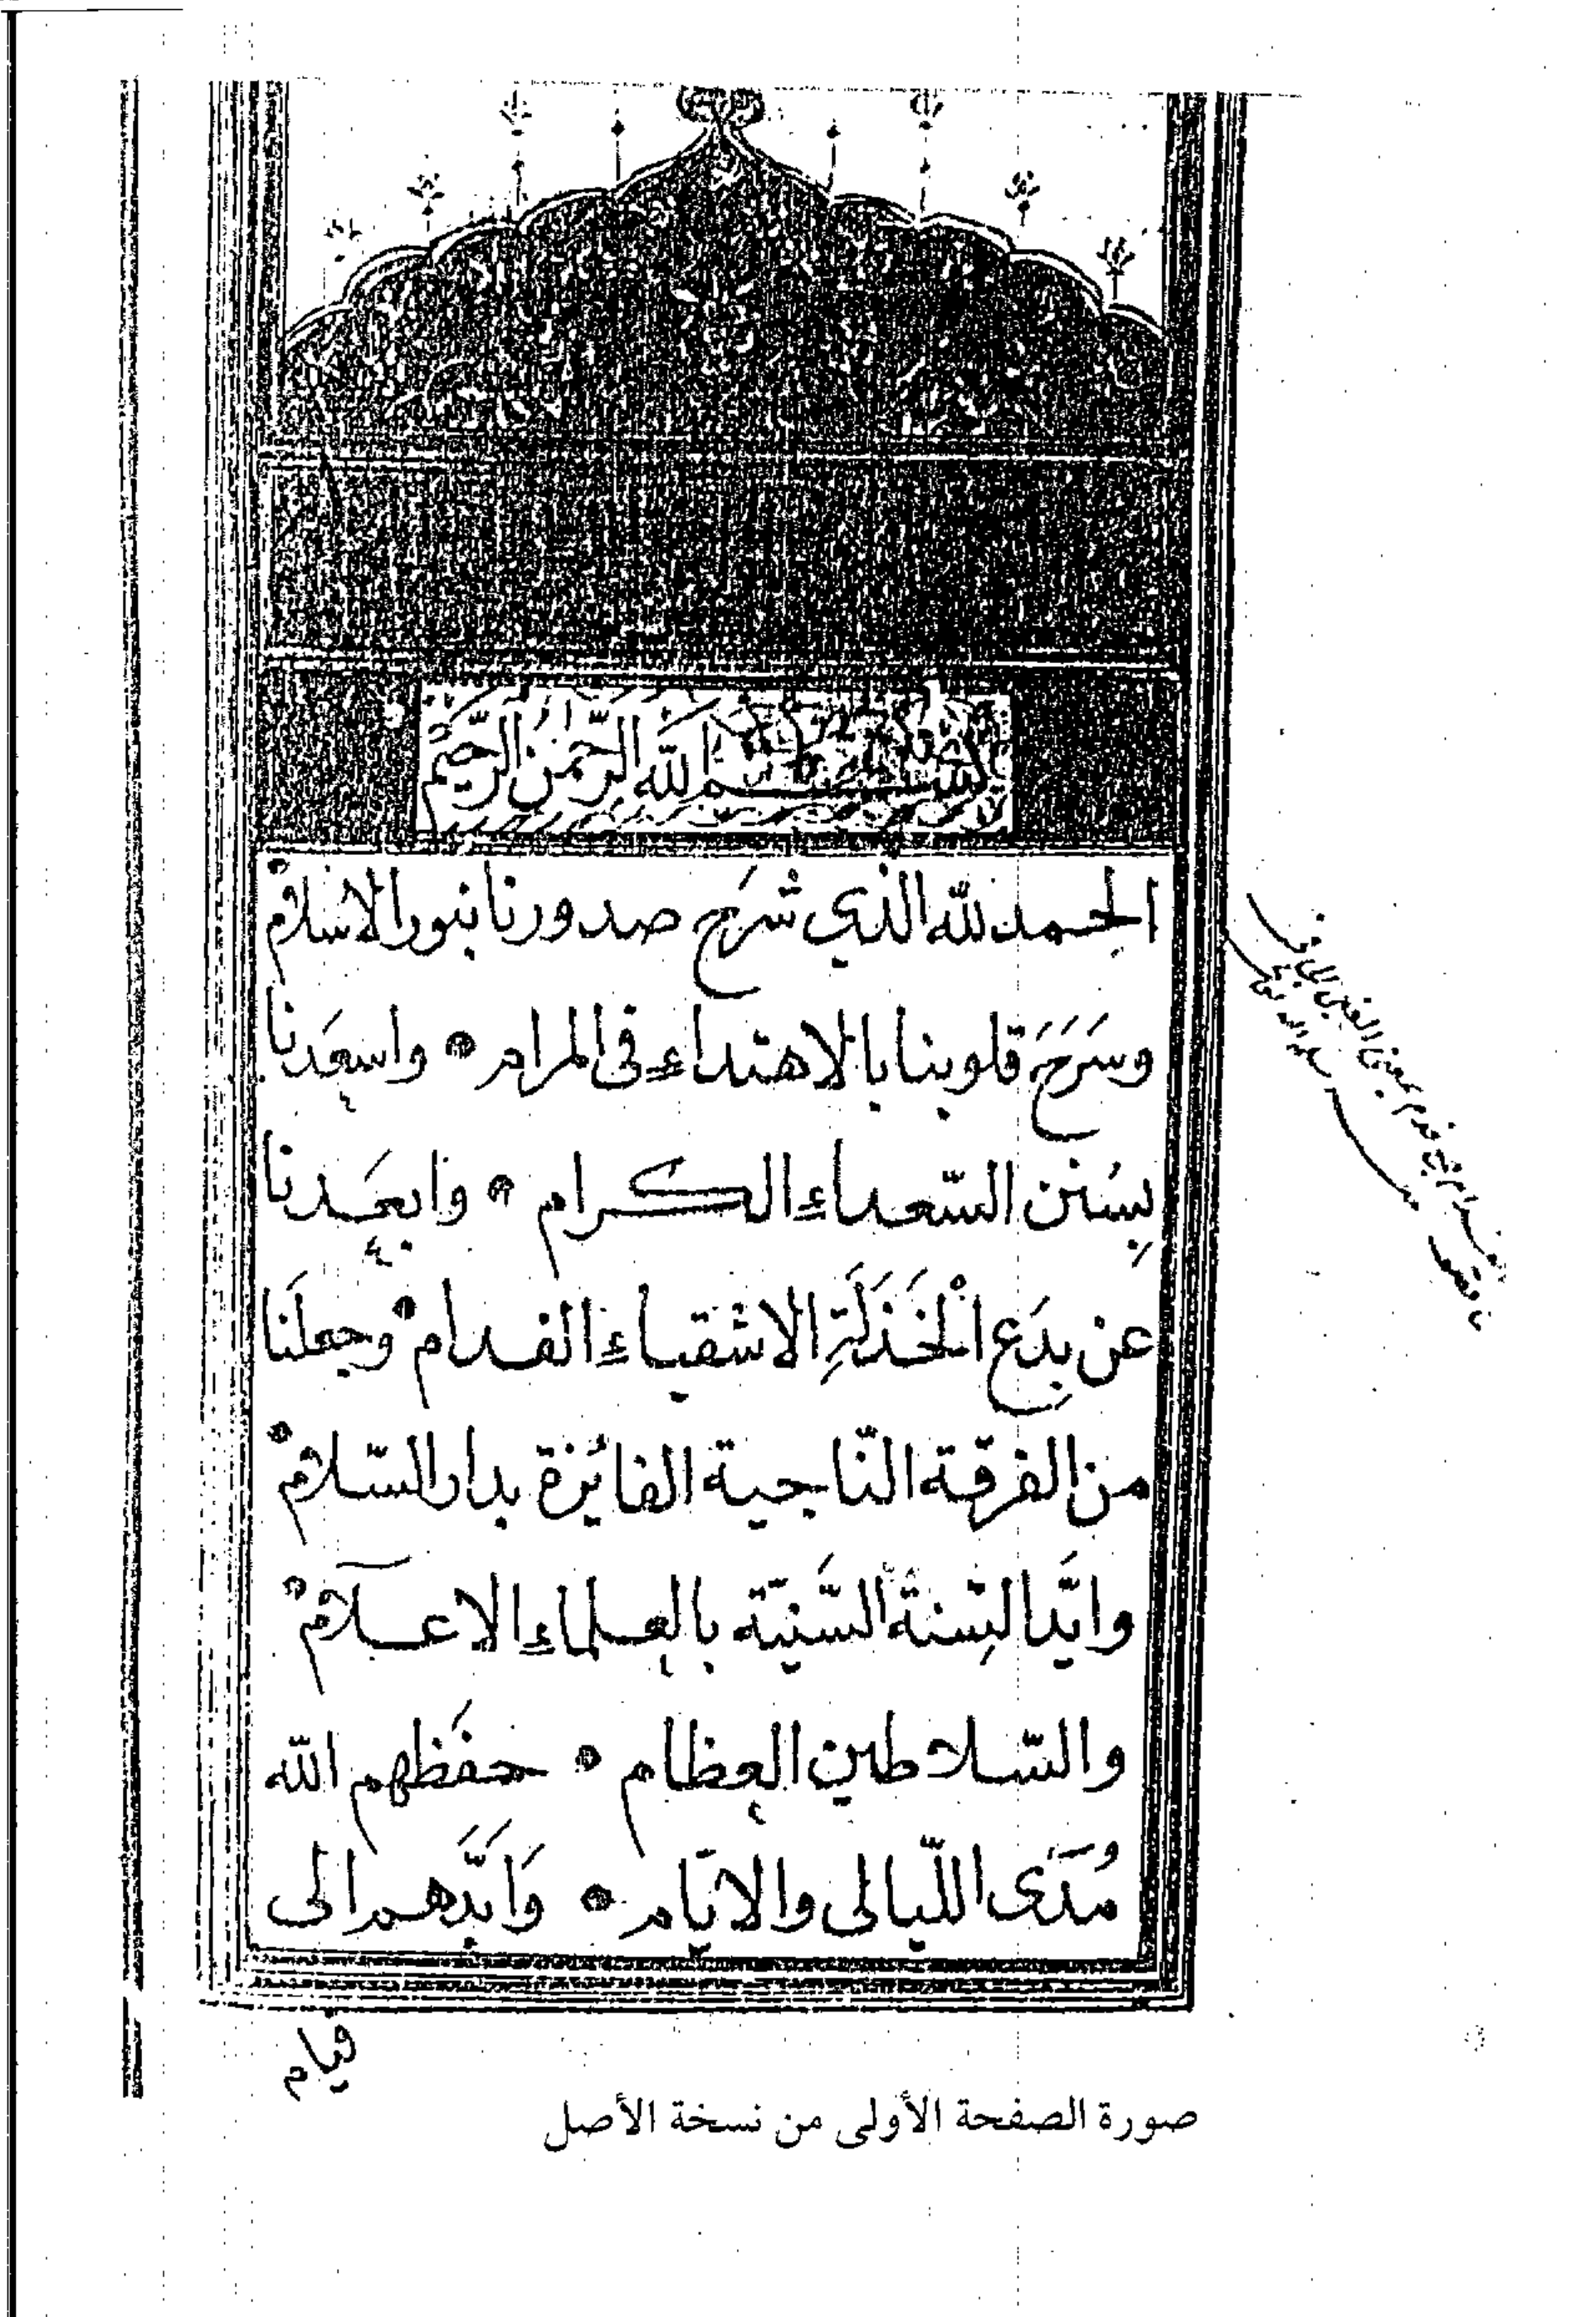 بسم الله الرّحمن الرّحيم
الحمد لله الذي شرَح صدورنا بنور الاسلام
وسَرَحَ قلوبنا بالاهتداءِ فى المرام واسعَدنا
بِسُنن السّعداءِ الكرام وابعَدنا
عن بِدَع الْخَذَلَةِ الاشقياءِ الفدام وجعلَنا
من الفرقة النّاجية الفائزة بدار السّلام
وايَّد السّنة السَّنيّة بالعلماءِ الاعلآم
والسّلاطين العظام حفَظهم الله
مُدَى اللّيالى والايّام وَاَيَّدهم الى
قيام
صورة الصفحة الأولى من نسخة الأصل